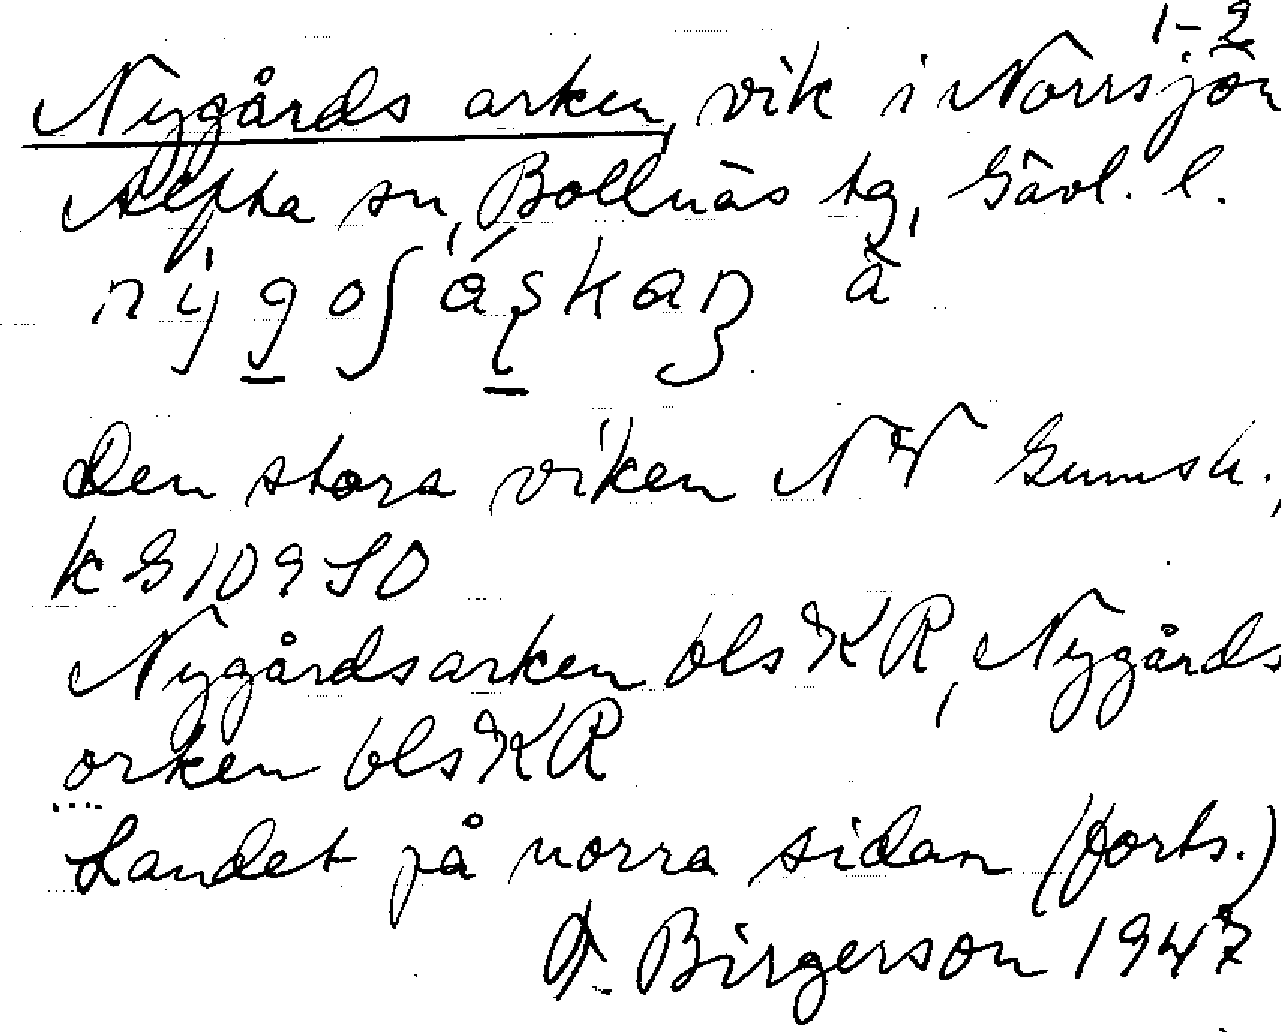 1-2
Nygårds arken, vik i Norrsjön
Alfta sn, Bollnäs tg, Gävl. l.
Den stora viken NV Gumsh.,
k G 109 SO
Nygårdsarken bls KR, Nygårds
orken bls KR
Landet på norra sidan (forts.)
F. Birgerson 1947